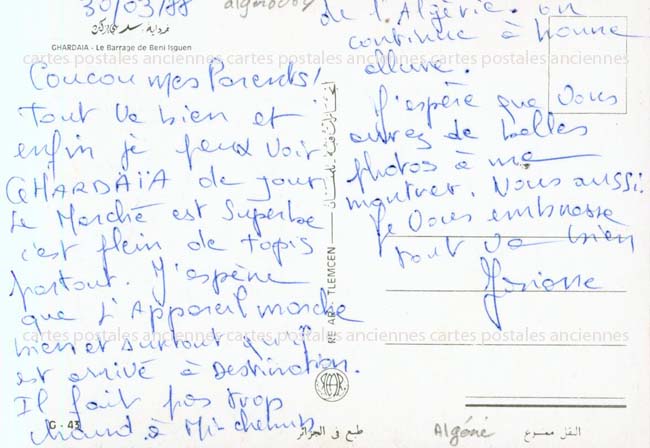 30/03/88
GHARDAIA - Le Barrage de Beni Isguen
Coucou mes Parents!
Tout va bien et
enfin je peux voir
GHARDAÏA de jour
Le Marché est Superbe
c'est plein de tapis
partout. J'espère
que L'Appareil marche
bien et surtout qu'il
est arrivé à Destination.
Il fait pas trop
chaud. à Mi-chemin
de l'Algérie. on
continue à bonne
allure.
J'espère que Vous
aurez de belles
photos à me
montrer. Nous aussi.
Je Vous embrasse
tout va bien
Josiane
G - 43
TLEMCEN
طبع في الجزائر
Algérie
النقل ممنوع
cartes postales anciennes cartes postales anciennes cartes postales anciennes
cartes postales anciennes cartes postales anciennes cartes postales anciennes